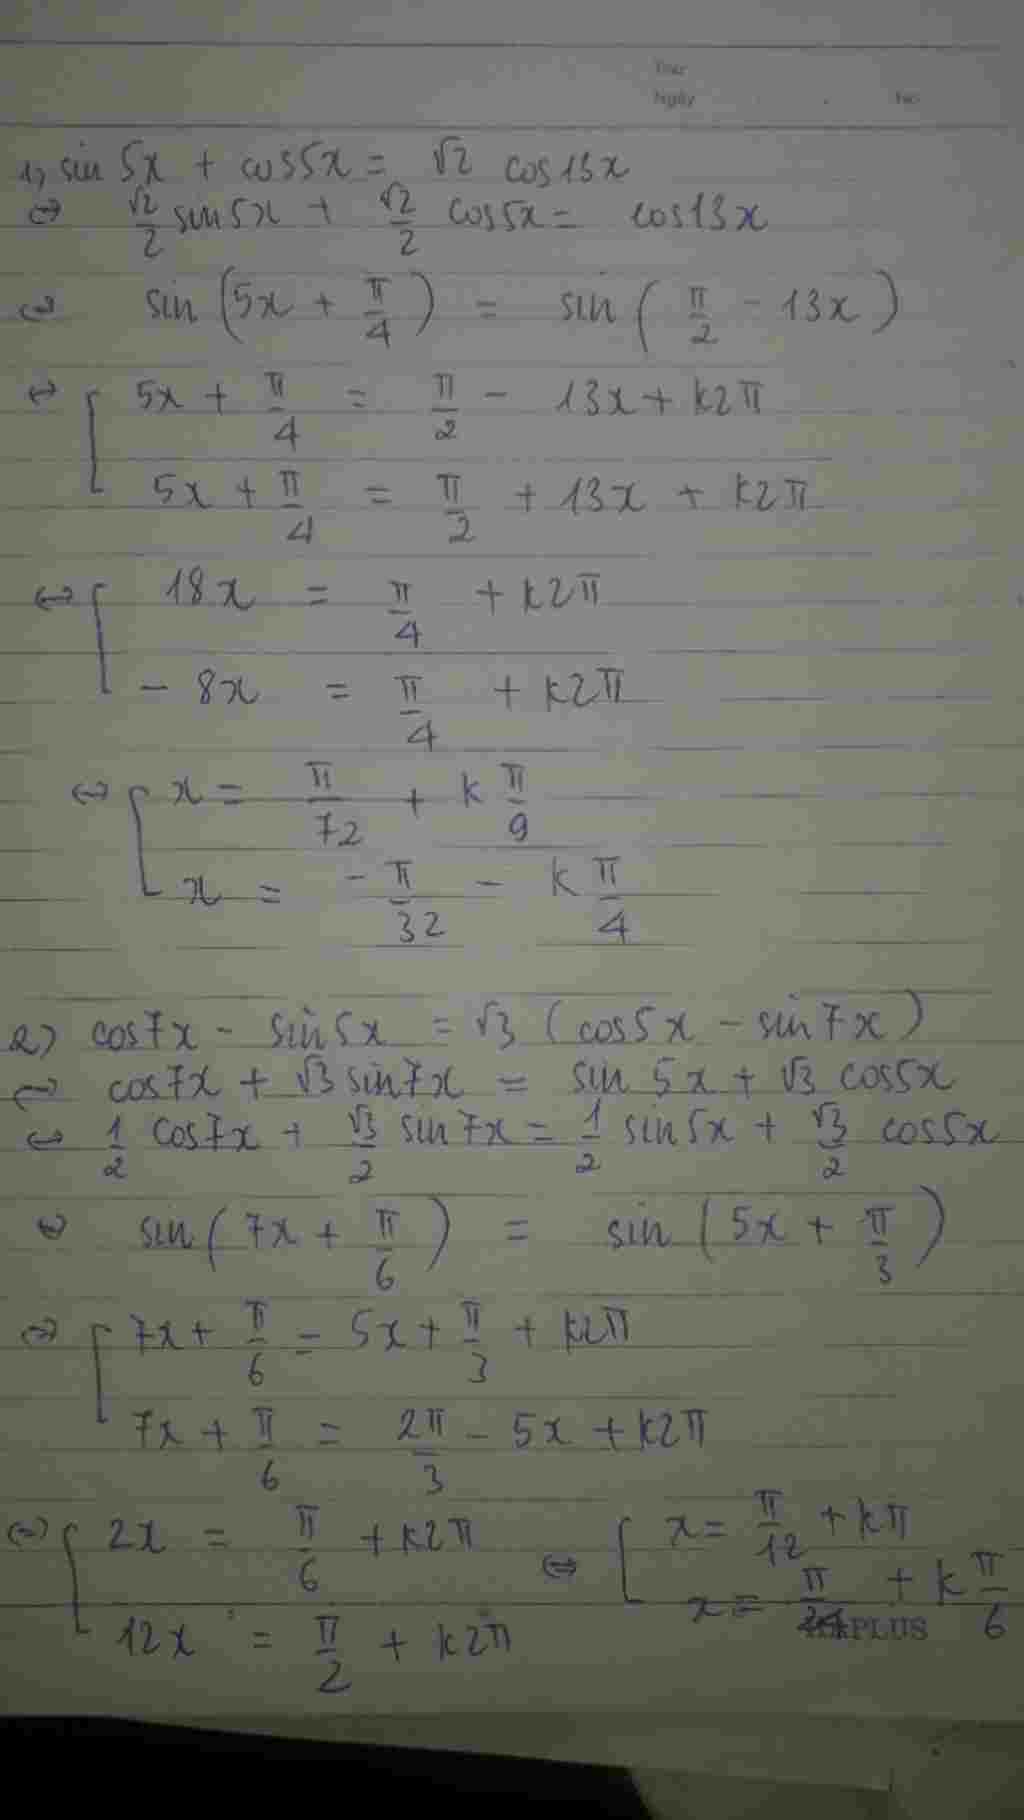 Thứ
Ngày . . No.
1) sin 5x + cos5x = √2 cos13x
⇔ √2/2 sin5x + √2/2 cos5x = cos13x
⇔ sin(5x + π/4) = sin(π/2 - 13x)
⇔ [ 5x + π/4 = π/2 - 13x + k2π
5x + π/4 = π/2 + 13x + k2π
⇔ [ 18x = π/4 + k2π
- 8x = π/4 + k2π
⇔ [ x = π/72 + k π/9
x = -π/32 - k π/4
2) cos7x - sin5x = √3 (cos5x - sin7x)
⇔ cos7x + √3 sin7x = sin 5x + √3 cos5x
⇔ 1/2 cos7x + √3/2 sin7x = 1/2 sin5x + √3/2 cos5x
⇔ sin(7x + π/6) = sin(5x + π/3)
⇔ [ 7x + π/6 = 5x + π/3 + k2π
7x + π/6 = 2π/3 - 5x + k2π
⇔ [ 2x = π/6 + k2π ⇔ [ x = π/12 + kπ
12x = π/2 + k2π x = π/24 + k π/6
PLUS